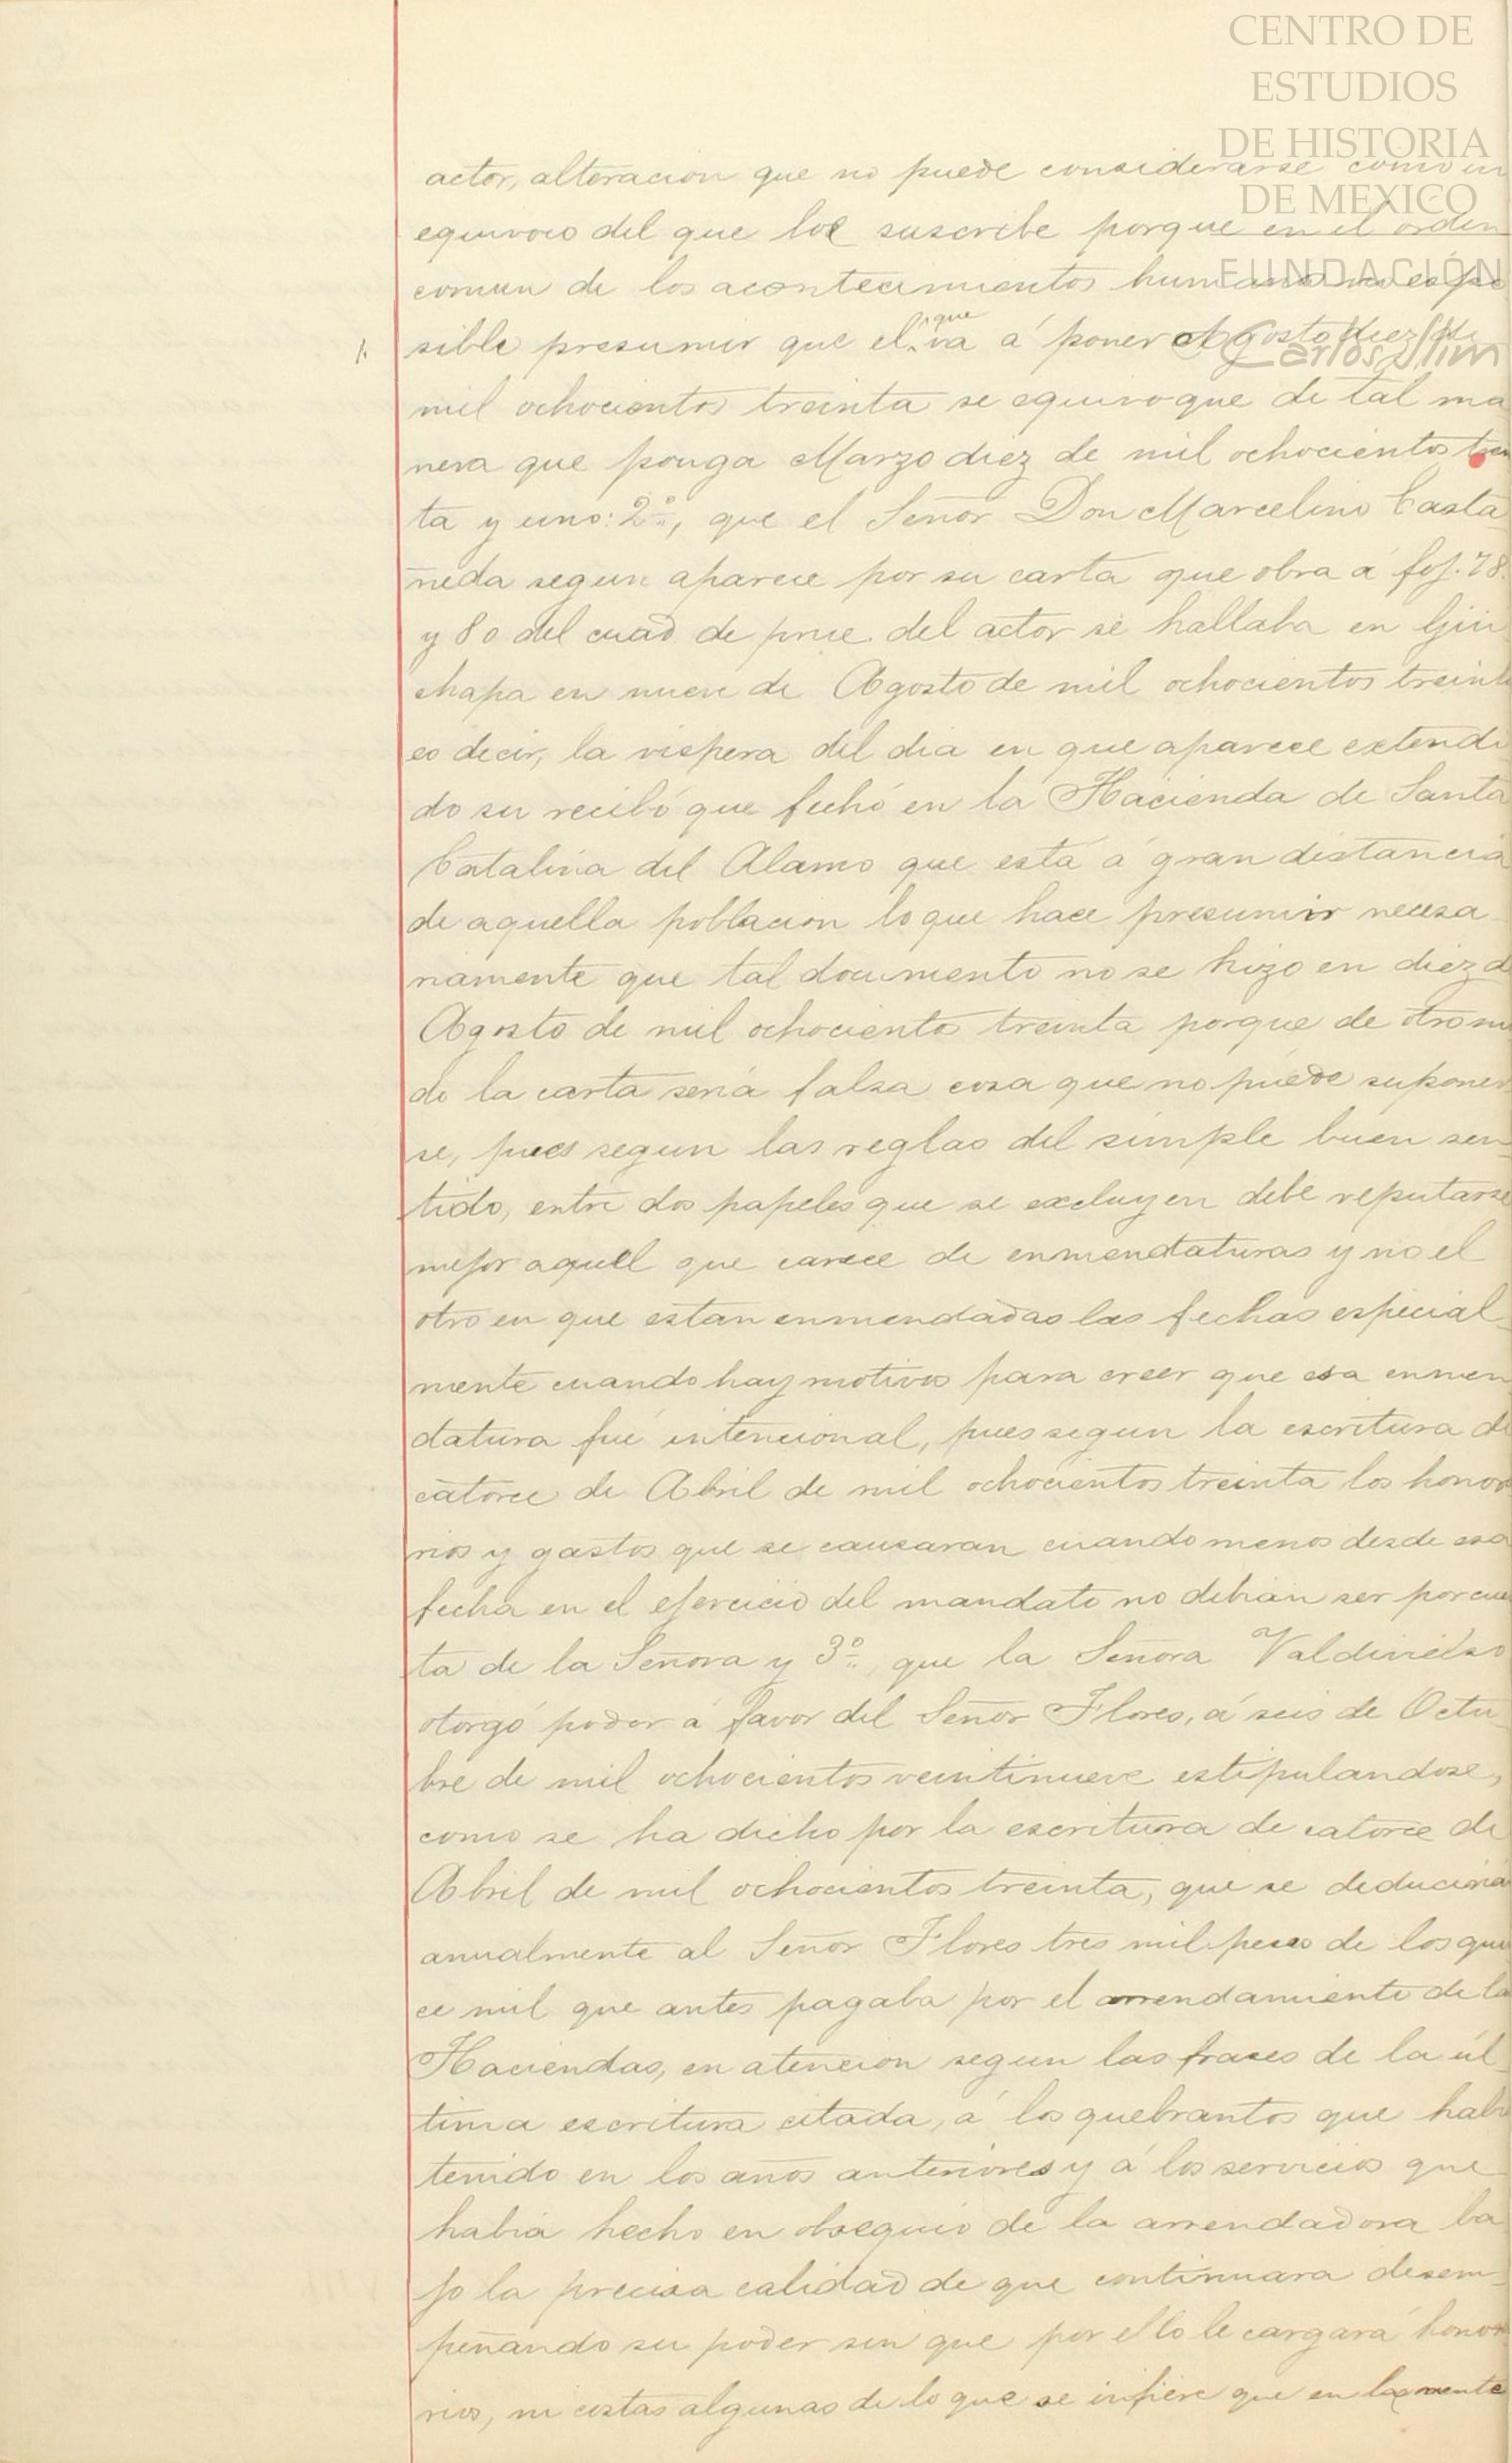 CENTRO DE
ESTUDIOS
DE HISTORIA
DE MEXICO
FUNDACIÓN
Carlos Slim
actor, alteracion que no puede considerarse como un
equivoco del que los suscribe porque en el orden
comun de los acontecimientos humanos no es po
1. sible presumir que el que va á poner Agosto diez de
mil ochocientos treinta se equivoque de tal ma
nera que ponga Marzo diez de mil ochocientos trein
ta y uno: 2º, que el Señor Don Marcelino Casta
ñeda segun aparece por su carta que obra á foj. 78
y 80 del cuad. de prue. del actor se hallaba en
chapa en nueve de Agosto de mil ochocientos treinta
es decir, la vispera del dia en que aparece extendi
do su recibó que fechó en la Hacienda de Santa
Catalina del Alamo que está á gran distancia
de aquella poblacion lo que hace presumir necesa
riamente que tal documento no se hizo en diez d
Agosto de mil ochocientos treinta porque de otro mo
do la carta seria falsa cosa que no puede suponer
se, pues segun las reglas del simple buen sen
tido, entre dos papeles que se excluyen debe reputarse
mejor aquell que carece de enmendaturas y no el
otro en que estan enmendadas las fechas especial
mente cuando hay motivos para creer que esa enmen
datura fué intencional, pues segun la escritura de
catorce de Abril de mil ochocientos treinta los honora
rios y gastos que se causaran cuando menos desde esa
fecha en el ejercicio del mandato no debian ser por cuen
ta de la Señora y 3º, que la Señora Valdivielso
otorgó poder á favor del Señor Flores, á seis de Octu
bre de mil ochocientos veintinueve estipulandose,
como se ha dicho por la escritura de catorce de
Abril de mil ochocientos treinta, que se deduciria
anualmente al Señor Flores tres mil pesos de los quin
ce mil que antes pagaba por el arrendamiento de la
Haciendas, en atencion segun las frases de la úl
tima escritura citada, á los quebrantos que habi
tenido en los años anteriores y á los servicios que
habia hecho en obsequio de la arrendadora ba
jo la precisa calidad de que continuara desem
peñando su poder sin que por ello le cargara honora
rios, ni costas algunas de lo que se infiere que en la mente